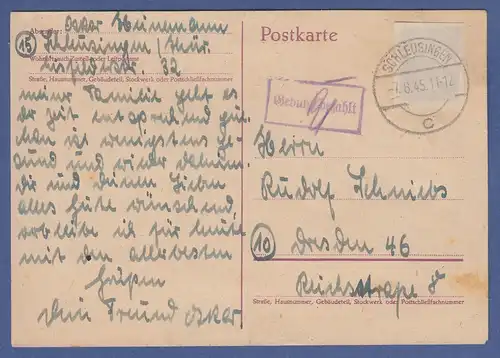 Absender: Oskar Heinemann
(15) Schleusingen / Thür.
32
Wohnort, auch Zustell- oder Leitpostamt
Straße, Hausnummer, Gebäudeteil, Stockwerk oder Postschließfachnummer
meiner Familie geht es
der Zeit entsprechend gut,
man ist wenigstens ge-
sund und wieder daheim.
Dir und Deinen Lieben
alles Gute wünschend,
verbleibe ich für heute
mit den allerbesten
Grüßen
Dein Freund Oskar
Postkarte
SCHLEUSINGEN
8.45. 11-12
c
Gebühr bezahlt
Herrn
Rudolf
(10) Dresden 46
Straße, Hausnummer, Gebäudeteil, Stockwerk oder Postschließfachnummer